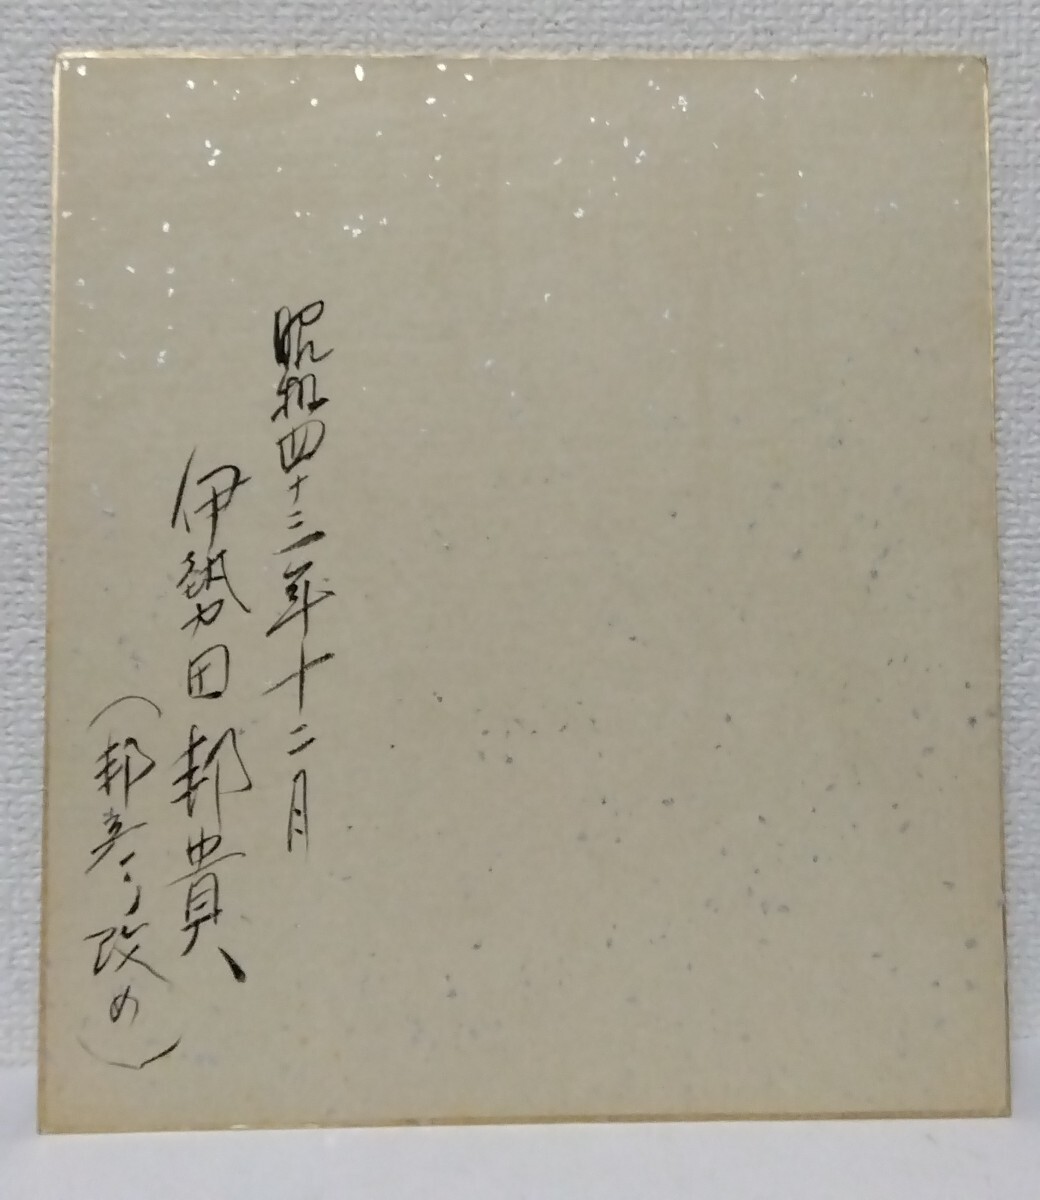 昭和四十三年十二月
伊勢田邦貴
(邦彦改め)